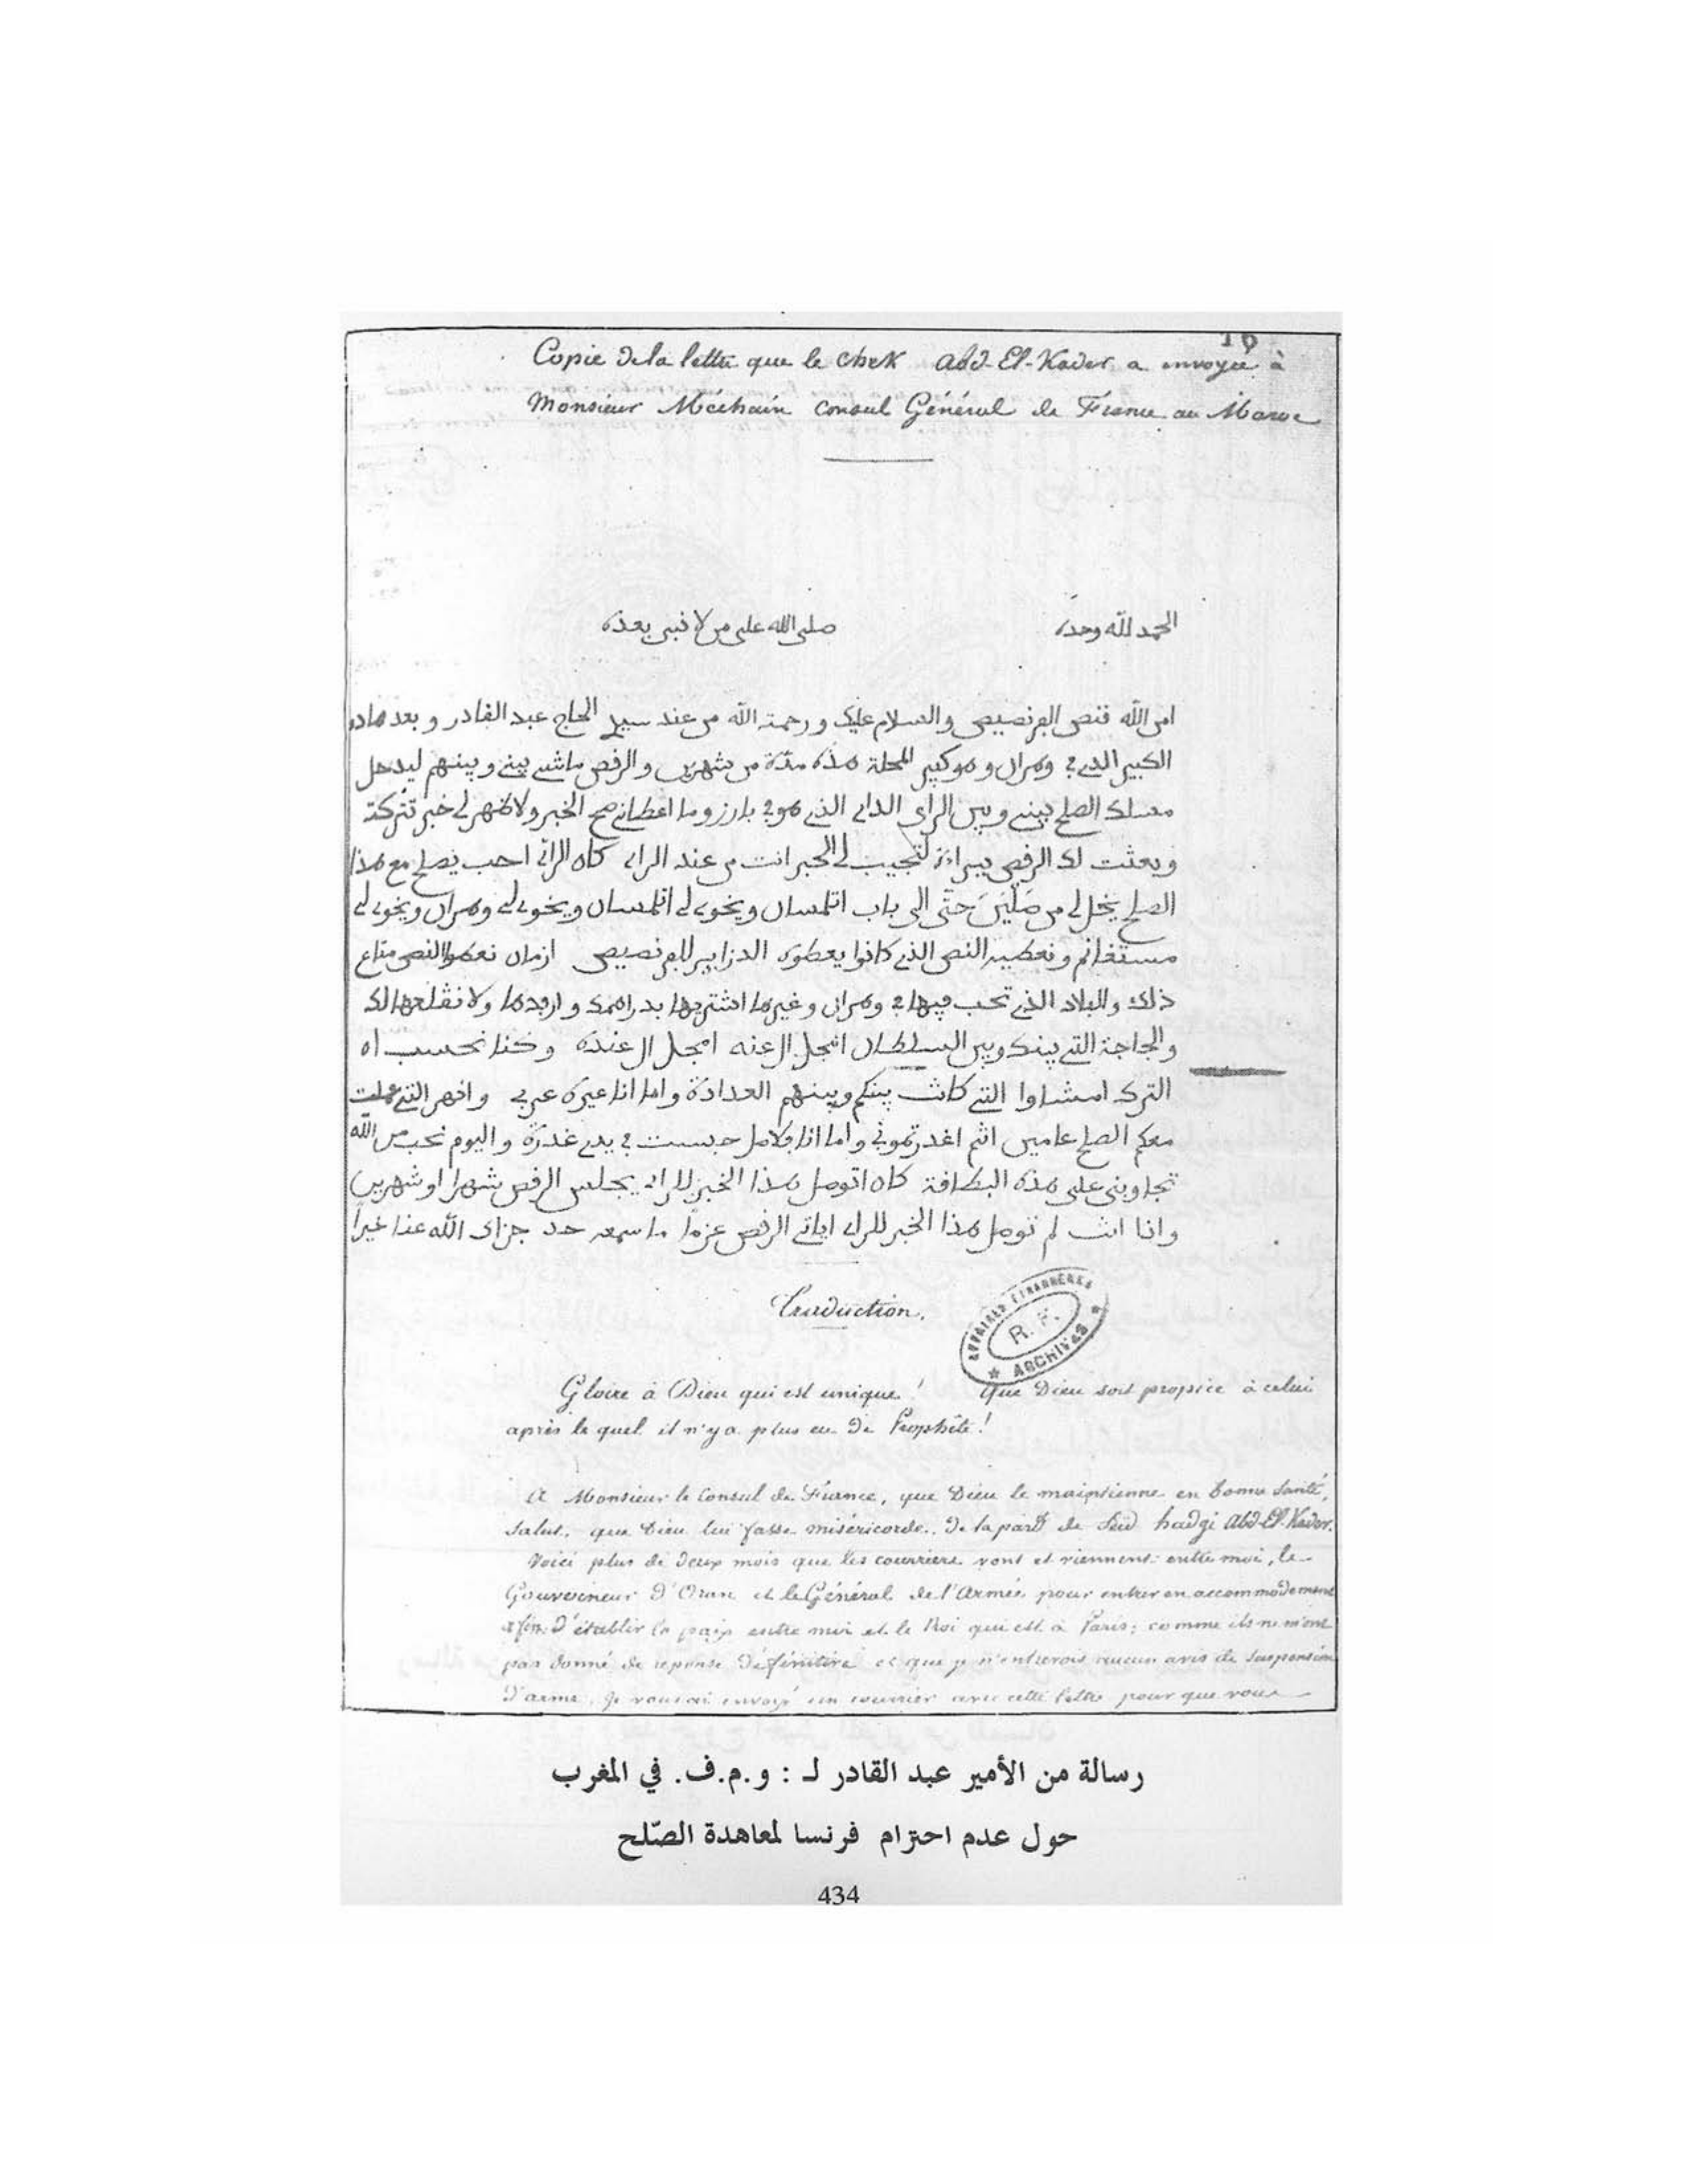 16
Copie de la lettre que le chek Abd-El-Kader a envoyée à
Monsieur Méchain consul Général de France au Maroc
الحمد لله وحده صلى الله على من لا نبي بعده
امن الله قنص الفرنصيص والسلام عليك ورحمة الله من عند سيد الحاج عبد القادر وبعد هاده
الكبير الذي في وهران وهو كبير المحلة هذه مدّة من شهرين والرقص ماشي بيني وبينهم ليدخل
مسلك الصلح بيني وبين الراي الذي هو في باريز وما اعطاني صح الخبر ولا ظهر لي خبر تتركة
وبعثت لك الرقص ببراءة لتجيب لي الخبر انت من عند الراي كان الراي احب يصلح مع هذا
الصلح يخل لي من مَلْيَنَ حتّى الى باب اتلمسان ويخوي لي اتلمسان ويخوي لي وهران ويخوي لي
مستغانم ونعطيه النص الذي كانوا يعطوه الدزاير للفرنصيص ازمان نعطوا النص متاع
ذلك والبلاد الذي تحب فيها في وهران وغيرها اشتريها بدراهمك وارفدها ولا نقلعها لك
والحاجة التي بينك وبين السلطان
الترك امشاوا التي كانت بينكم وبينهم العداوة واما انا غيره عربي
معكم الصلح عامين انتم اغدرتموني واما انا
تجاوبني على هذه البطاقة كان اتوصل هذا الخبر للراي يجلس الرقص شهرا او شهرين
وانا انت لم توصل هذا الخبر للراي الرقص عزما ما سمعه حد جزاك الله عنا خيراً
Traduction.
AFFAIRES ÉTRANGÈRES
R. F.
ARCHIVES
Gloire à Dieu qui est unique! Que Dieu soit propice à celui
après le quel il n'y a plus eu de Prophête!
A Monsieur le Consul de France, que Dieu le maintienne en bonne santé,
salut, que Dieu lui fasse miséricorde. De la part de Seïd hadgi Abd-El-Kader.
Voici plus de deux mois que les courriers vont et viennent entre moi, le
Gouverneur d'Oran et le Général de l'Armée pour entrer en accommodement
afin d'établir la paix entre moi et le Roi qui est à Paris; comme ils ne m'ont
pas donné de reponse définitive et que je n'entrevois aucun avis de suspension
d'arme, je vous ai envoyé un courrier avec cette lettre pour que vous
رسالة من الأمير عبد القادر لـ : و.م.ف. في المغرب
حول عدم احترام فرنسا لمعاهدة الصّلح
434